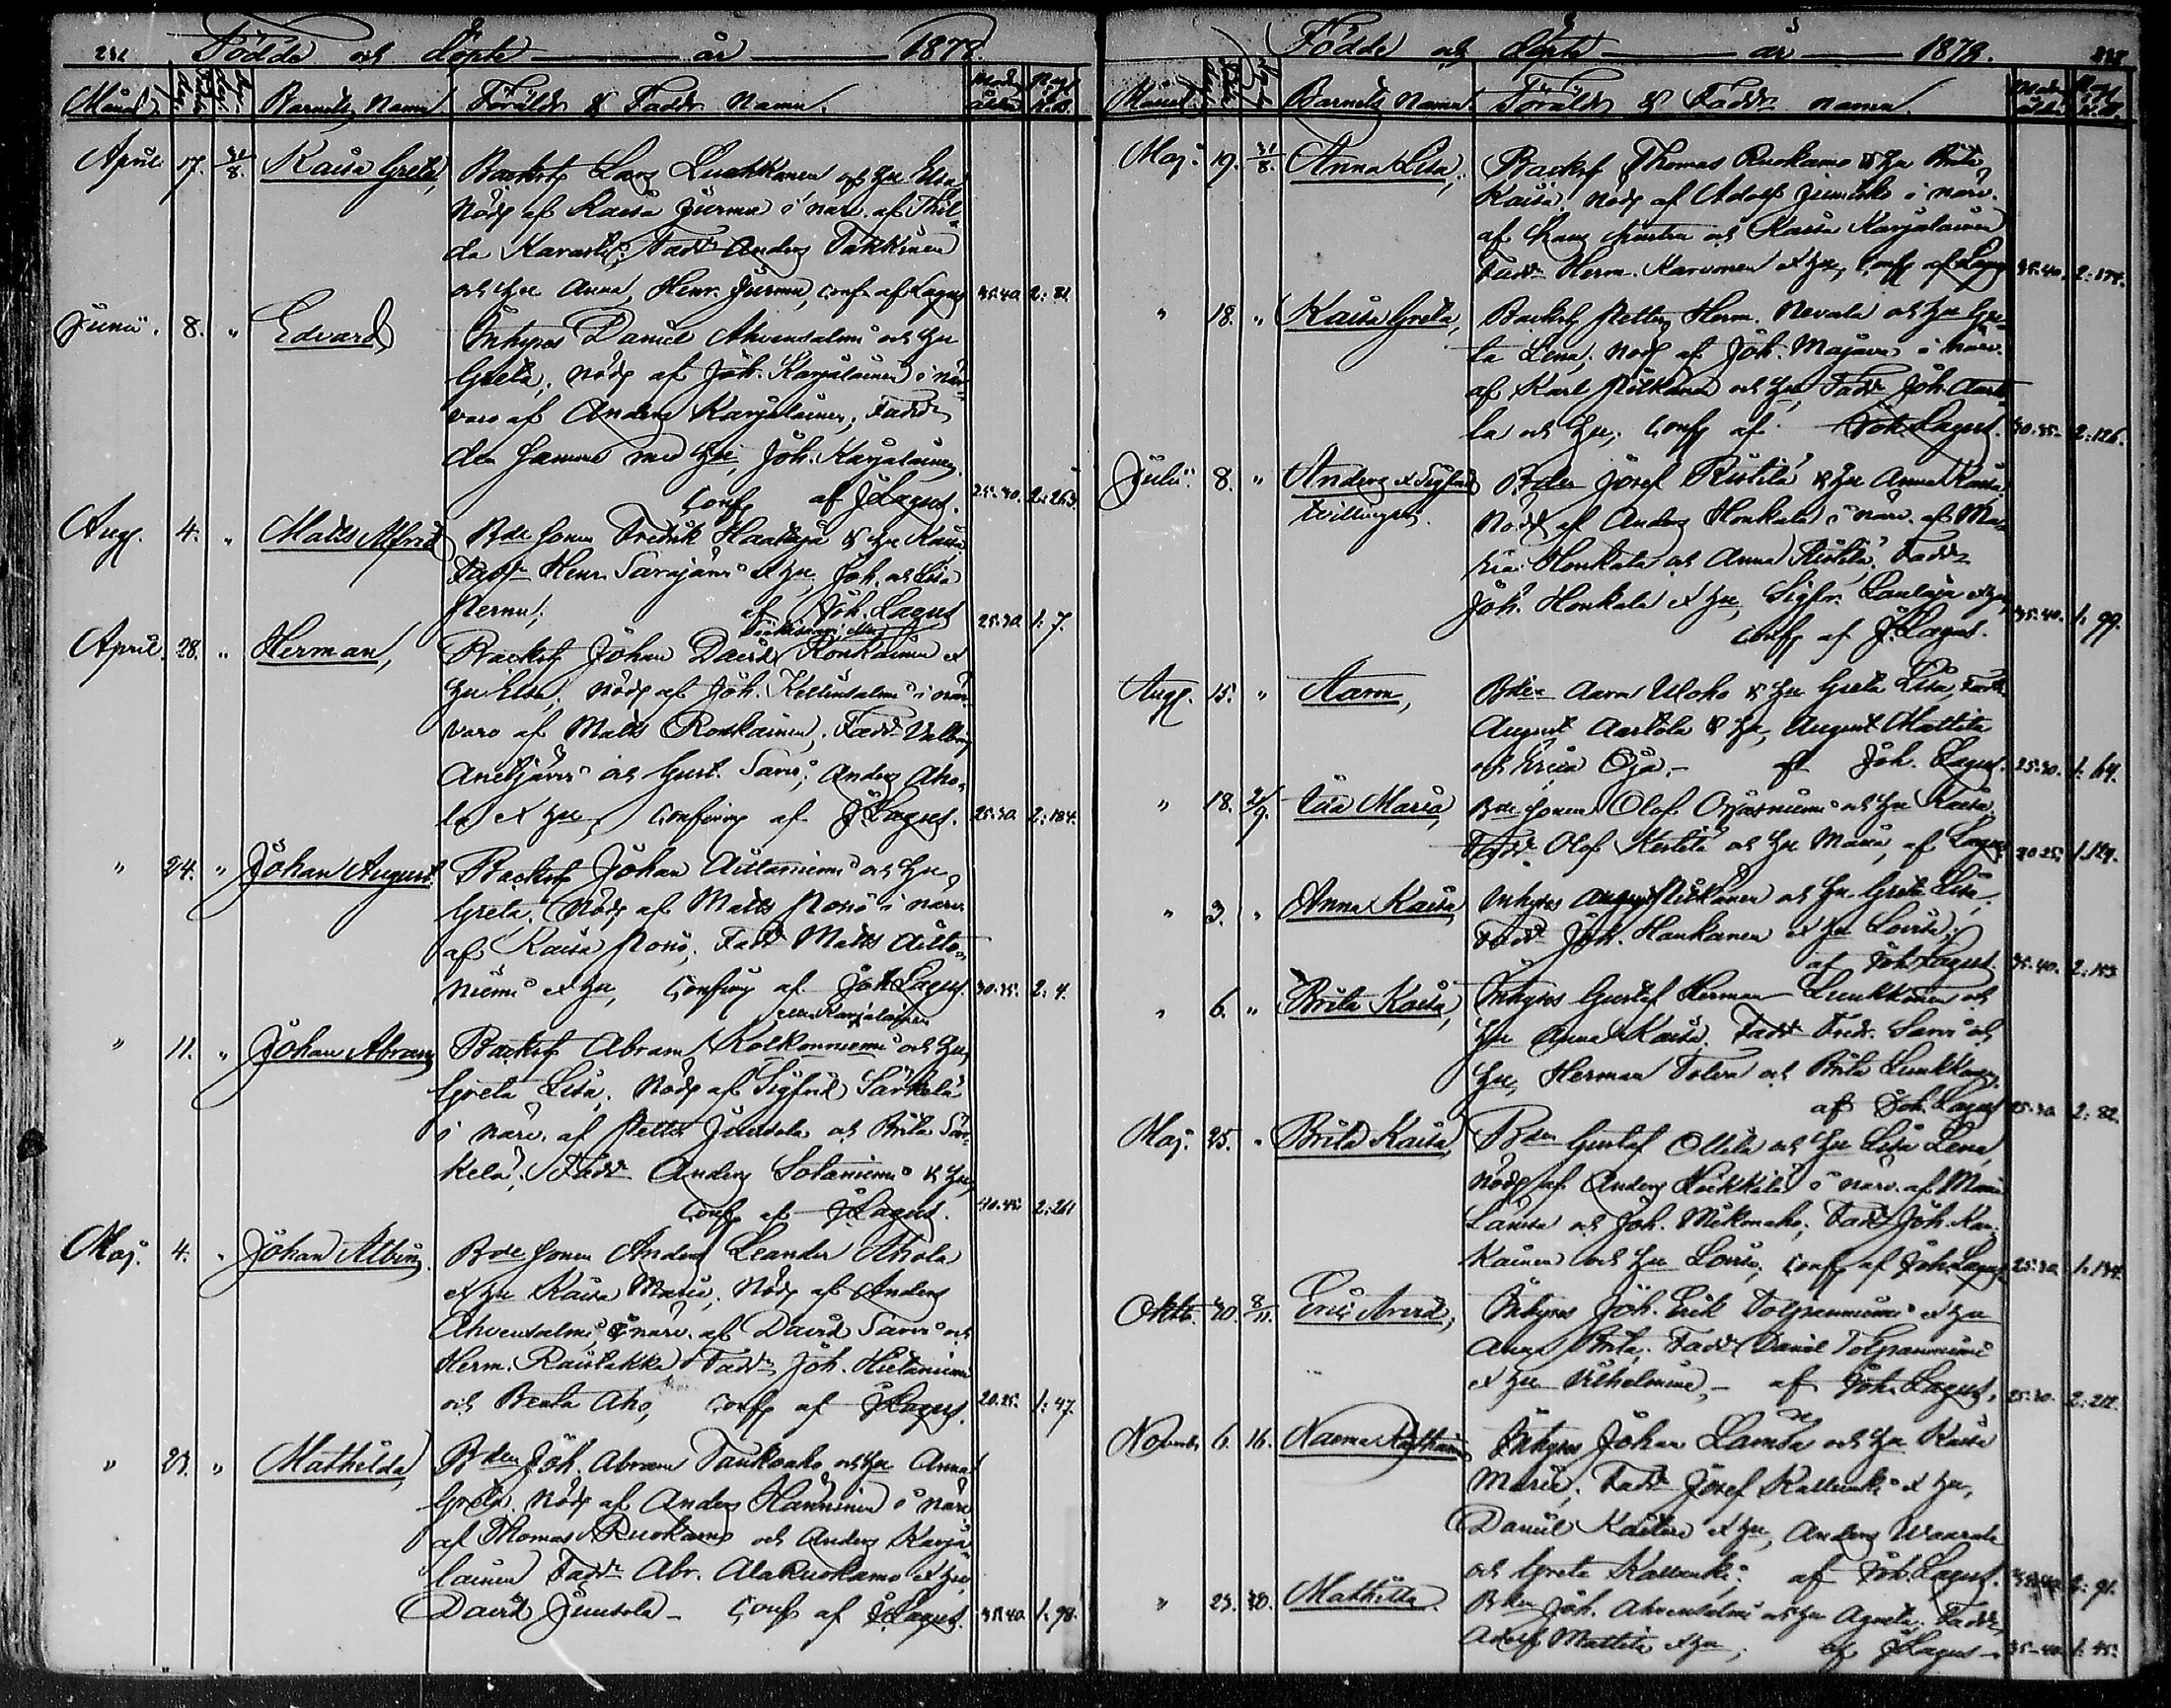 Födde och döpte år 1878.
Månad. Barnets Namn. Föräldr. & Faddr. Namn. Mod. ålder Pag. K.B.
April 17. 31/8. Kaisa Greta, Backst. Lars Luukkanen och hu Elsa,
Nödp. af Kaisa Jurmu i närv. af Thil-
da Karvasti; Faddr Anders Takkinen
och hu Anna, Henr. Jurmu, Conf. af Lagus 35.40. 2:81
Junii. 8. " Edvard, Inhyses Daniel Ahvensalmi och hu
Greta, nödp af Joh. Karjalainen i när-
varo af Anders Karjalainen, Faddr
den samme med hu, Joh. Karjalainen,
Conf af J Lagus. 25.30. 2:263
Aug. 4. " Matts Alfred Bde sonen Fredrik Haataja & hu Kaisa
Faddr Henr. Sarajärvi & hu, Joh. och Lisa
Pernu; af Joh. Lagus 25.30. 1:7.
April. 28. " Herman, Backst Johan David Ronkainen &
hu Elsa; Nödp af Joh. Kellinsalmi i när-
varo af Matts Ronkainen, Faddr Valborg
och Gust. Sarvi, Anders Aho-
la & hu, Confirm af J Lagus. 25.30. 2:184.
" 24. " Johan August. Backst Johan Aittaniemi och hu
Greta, Nödp af Matts Nono i närv.
af Kaisa Nono, Faddr Matts Aitta-
niemi & hu, Confirm af Joh Lagus. 30.35. 2:4.
eller Karjalainen
" 11. " Johan Abram, Backst Abram Kolkonniemi och hu
Greta Lisa, Nödp af Sigfrid Särkelä
i närv. af Petter Juusola och Brita Sär-
kelä, Faddr Anders Sotaniemi & hu,
Conf af J Lagus. 40.45. 2:261
Maj. 4. " Johan Albin. Bde sonen Anders Leander Ahola
& hu Kaisa Maria, Nödp af Anders
Ahvensalmi, i närv. af David Sarvi och
Herm. Rautakka Faddr Joh. Hietaniemi
och Beata Aho, Conf af J Lagus. 20.25. 1:47.
" 23. " Mathilda, Bden Joh. Abram Taukoaho och hu Anna
Greta, Nödp af Anders Hänninen i närv
af Thomas Ruokamo och Anders Karja-
lainen Faddr Abr. AlaRuokamo & hu
David Juusola – Conf af J Lagus. 35.40. 1:98.
Födde och döpte år 1878.
Månad. Barnets Namn. Föräldr. & Faddr. namn.
Maj. 19. 31/8. Anna Lisa, Backst Thomas Ruokamo & hu Brita
Kaisa, nödp af Adolf i närv.
af Lars och Kaisa Karjalainen
Faddr Herm. Karvonen & hu, Conf af Lagus 35.40. 2:174.
" 18. " Kaisa Greta, Backst Petter Herm. Nevala och hu Gre-
ta Lena, nödp af Joh. Majava i närv.
af Karl Pitkänen och hu Faddr Joh. Aarto-
la och hu, Conf af Joh Lagus. 30.35. 2:126.
Julii. 8. " Anders & Sigfrid Bden Josef Ristilä & hu Anna Kaisa
tvillingar. Nödp af Anders Honkala i närv. af Ma-
ria Honkala och Anna Ristilä, Faddr
Joh. Honkala & hu, Sigfr. Lantaja & hu,
Conf af J. Lagus. 35.40. 1:99.
Aug. 15. " Aaron, Bden Aaron Uloho & hu Greta Lisa, Faddr
August Aartola & hu, August Mattila
och Erica Oja. – af Joh. Lagus. 25.30. 1:64.
" 18. 2/9. Eva Maria, Bde sonen Olof Orjasniemi och hu Kaisa
Faddr Olof Kestilä och hu Maria, af Lagus 20.25. 1:124.
" 3. " Anna Kaisa, Inhyses August Pitkänen och hu Greta Lisa,
Faddr Joh. Haukanen & hu Lovisa,
af Joh Lagus 35.40. 2:153
" 6. " Brita Kaisa, Inhyses Gustaf Herman Luukkonen och
hu Anna Kaisa. Faddr Fredr. Sarvi och
hu, Herman Tolva och Brita Luukkonen
af Joh. Lagus 25.30. 2:82.
Maj. 25. " Brita Kaisa, Bden Gustaf Ollila och hu Lisa Lena,
Nödp af Anders Heikkilä i närv. af Maria
Lämsä och Joh. Mikonaho, Faddr Joh. Kar-
kainen och hu Lovisa, Conf af Joh. Lagus 25.30. 1:134.
Oktob. 20. 8/11. Eric Arvid, Inhyses Joh. Erik Tolpanniemi & hu
Anna Brita. Faddr Daniel Tolpanniemi
& hu Vilhelmina, – af Joh. Lagus. 25.30. 2:212.
Novemb. 6. 16. Inhyses Johan Lämsä och hu Kaisa
Maria, Faddr Josef Kallunki & hu,
Daniel Käitere & hu, Anders Waarala
och Greta Kallunki; af Joh. Lagus. 2:91.
" 23. 30. Mathilda. Bden Joh. Ahvensalmi och hu Agneta, Faddr
Adolf Mattila & hu; af J Lagus – 35–40. 1:45.